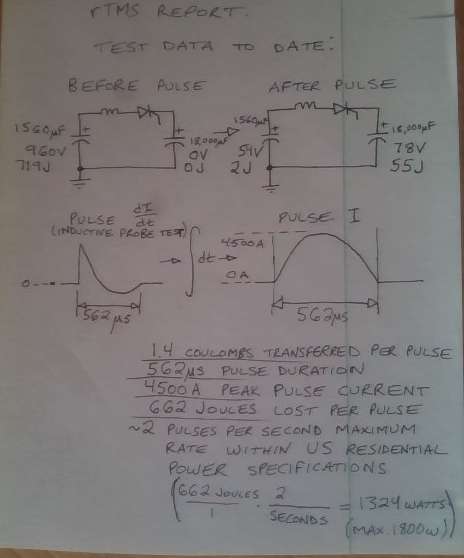 rTMS REPORT.
TEST DATA TO DATE:
BEFORE PULSE
AFTER PULSE
1560µF
960V
719J
18,000µF
0V
0J
1560µF
54V
2J
18,000µF
78V
55J
PULSE dI/dt
(INDUCTIVE PROBE TEST)
0
562µs
∫ dt
PULSE I
4500A
0A
562µs
1.4 COULOMBS TRANSFERRED PER PULSE
562µs PULSE DURATION
4500A PEAK PULSE CURRENT
662 JOULES LOST PER PULSE
~2 PULSES PER SECOND MAXIMUM
RATE WITHIN US RESIDENTIAL
POWER SPECIFICATIONS
(662 JOULES/1 · 2/SECONDS = 1324 WATTS)
(MAX. 1800W)